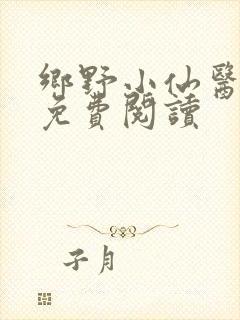 鄉野小仙醫
免費閱讀
子月